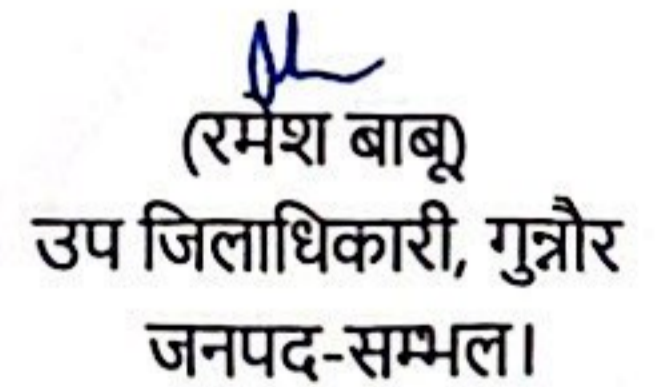 (रमेश बाबू)
उप जिलाधिकारी, गुन्नौर
जनपद-सम्भल।